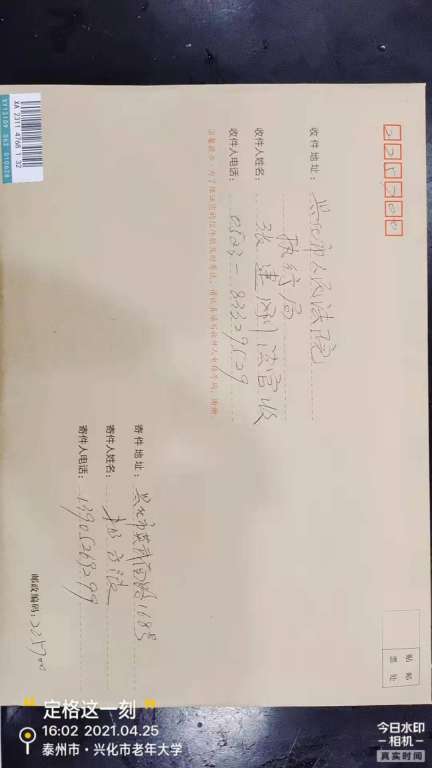 225700
收件地址：兴化市人民法院
执行局
收件人姓名：张建刚法官收
收件人电话：0523-83329529
温馨提示：为了保证您的信件能及时寄达，请认真填写收件人电话号码，谢谢。
寄件地址：兴化市英武南路168号
寄件人姓名：
寄件人电话：13905268299
邮政编码：225700
贴邮
票处
XA 2311 4768 1 32
定格这一刻
16:02 2021.04.25
泰州市·兴化市老年大学
今日水印
-相机-
真实时间